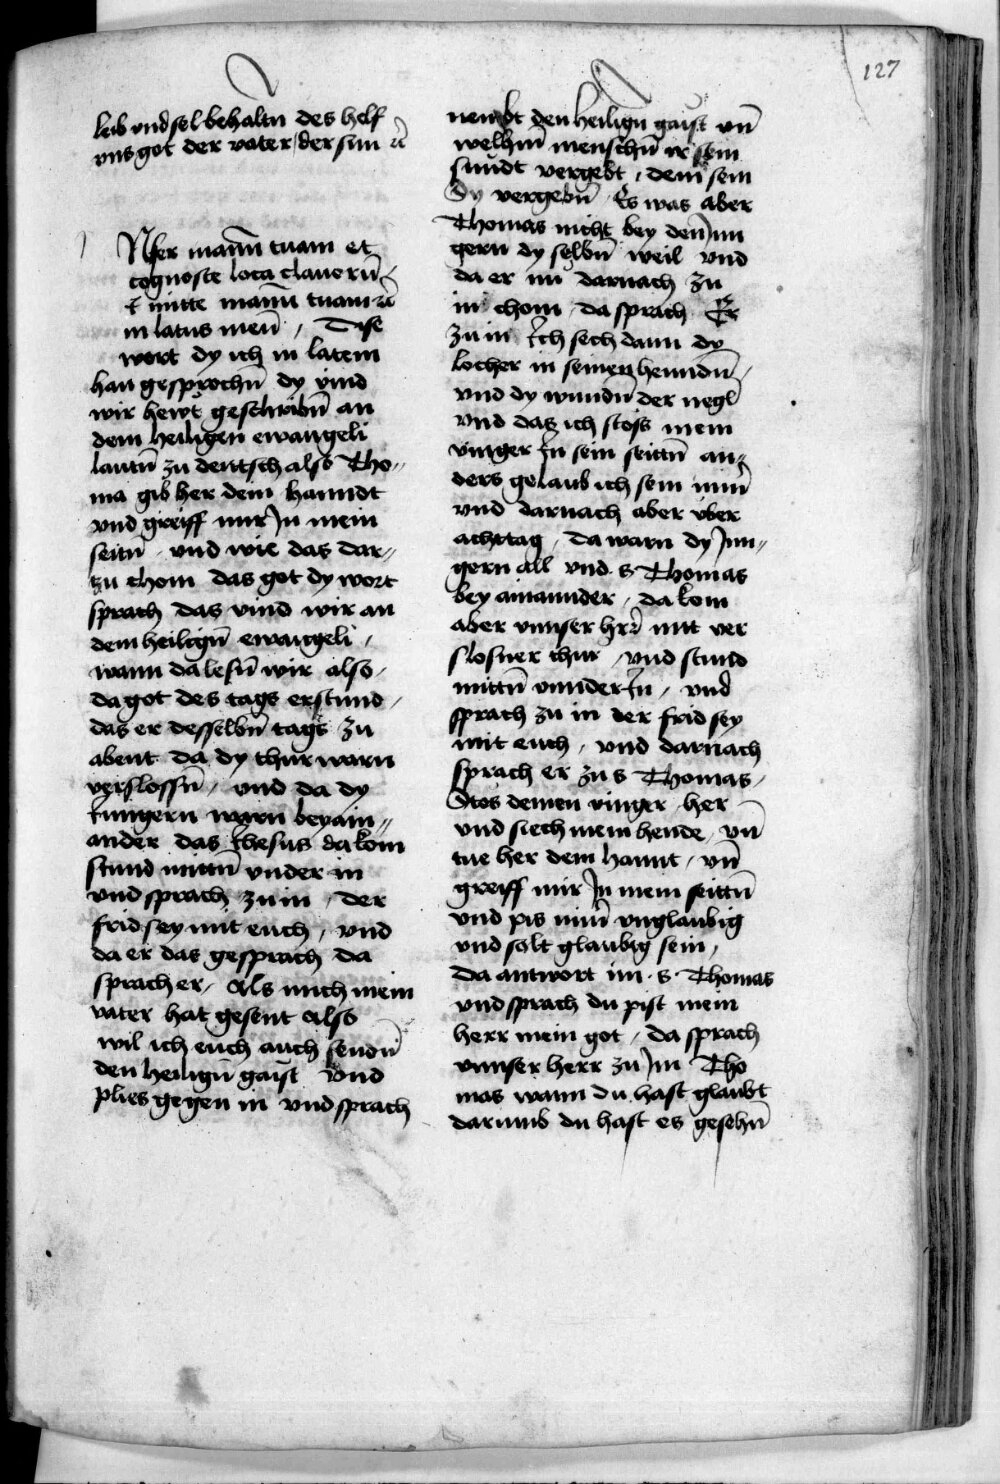 127
leib vnd sel behaltn des helf
vns got der vater der sun ꝛc̄
Nfer manū tuam et
cognosce loca clauorū
⁊ mitte manū tuam ꝛc̄
in latus meū / Dise
wort dy ich in latein
han gesprochn̄ dy vind
wir hewt geschribn̄ an
dem heiligen ewangeli
lautn̄ zu deutsch also Tho⸗
ma gib her dein hanndt
vnd greiff mir Jn mein
seitn̄ / vnd wie das dar⸗
zu chom das got dy wort
sprach das vind wir an
dem heilign̄ ewangeli /
wann da lesn̄ wir also /
da got des tags erstund /
das er desselbn̄ tags zu
abent da dy thur warn
verslossn̄ / vnd da dy
Jungern warn beyain⸗
ander das Jhesus da kom
stund mittn̄ vnder in
vnd sprach zu in / der
frid sey mit euch / vnd
da er das gesprach da
sprach er / Als mich mein
vater hat gesent also
wil ich euch auch sendn̄
den heilign̄ gaist vnd
plies gegen in vnd sprach
nembt den heilign gaist vn̄
welhm̄ menschn̄ ir sein
sundt vergebt / dem sein
Sy vergebn̄ / Es was aber
Thomas nicht bey den Jun
gern dy selbn̄ weil vnd
da er nu darnach zu
in chom / da sprach Er
zu in Jch sech dann dy
locher in seinen henndn̄ /
vnd dy wundn̄ der negl
vnd das ich stoss mein
vinger Jn sein seittn̄ an⸗
ders gelaub ich sein nin̄
vnd darnach aber vber
achttag / da warn dy Jun⸗
gern all vnd s Thomas
bey ainannder / da kom
aber vnnser hr̄ mit ver
slosner thur / vnd stund
mittn̄ vnnder Jn / vnd
sprach zu in der frid sey
mit euch / vnd darnach
sprach er zu s Thomas /
Stos deinen vinger her
vnd siech mein hende / vn̄
tue her dein hannt / vn̄
greiff mir Jn mein seittn̄
vnd pis nin̄ vnglaubig
vnd solt glaubig sein /
da antwort im s Thomas
vnd sprach du pist mein
herr mein got / da sprach
vnnser herr zu Jm Tho
mas wann du hast glaubt
darumb du hast es gesehn̄